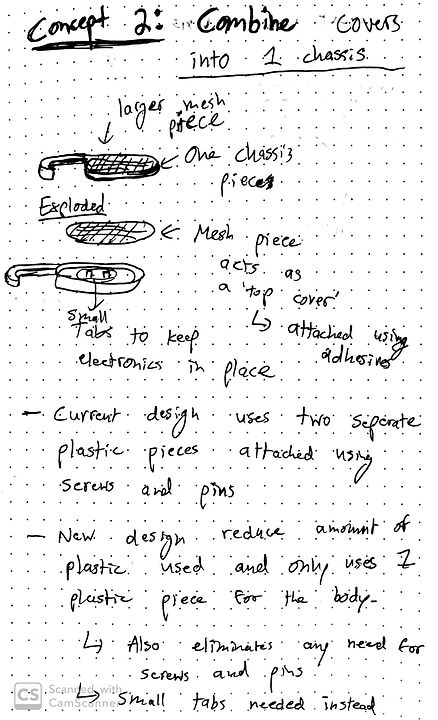 Concept 2: Combine covers
into 1 chassis.
larger mesh
piece
One chassis
piece
Exploded
Mesh piece
acts as
a 'top cover'
↳ attached using
adhesives
small
tabs to keep
electronics in place
- Current design uses two separate
plastic pieces attached using
screws and pins
- New design reduce amount of
plastic used and only uses 1
plastic piece for the body.
↳ Also eliminates any need for
screws and pins
↳ Small tabs needed instead
CS Scanned with
CamScanner